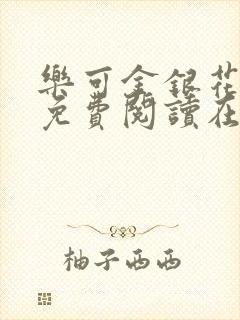 樂可金銀花
免費閱讀在
柚子西西